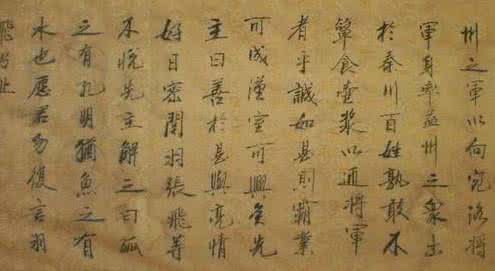 州之軍以向宛洛將
軍身率益州之衆出
於秦川百姓孰敢不
簞食壺漿以迎將軍
者乎誠如是則霸業
可成漢室可興矣先
主曰善於是與亮情
好日密關羽張飛等
不悅先主解之曰孤
之有孔明猶魚之有
水也願君勿復言羽
飛乃止